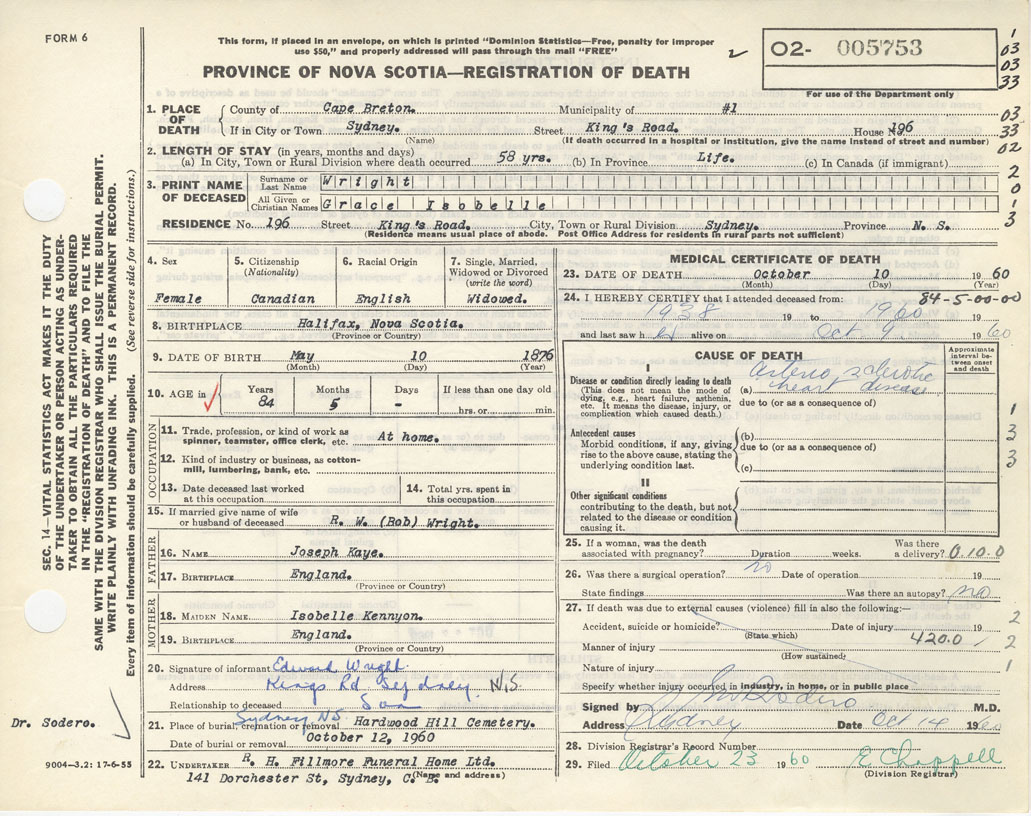 FORM 6
This form, if placed in an envelope, on which is printed "Dominion Statistics—Free, penalty for improper
use $50," and properly addressed will pass through the mail "FREE"
PROVINCE OF NOVA SCOTIA—REGISTRATION OF DEATH
O2- 005753
For use of the Department only
1
03
03
33
03
33
02
2
0
1
3
SEC. 14—VITAL STATISTICS ACT MAKES IT THE DUTY
OF THE UNDERTAKER OR PERSON ACTING AS UNDER-
TAKER TO OBTAIN ALL THE PARTICULARS REQUIRED
IN THE "REGISTRATION OF DEATH" AND TO FILE THE
SAME WITH THE DIVISION REGISTRAR WHO SHALL ISSUE THE BURIAL PERMIT.
WRITE PLAINLY WITH UNFADING INK. THIS IS A PERMANENT RECORD.
Every item of information should be carefully supplied. (See reverse side for instructions.)
Dr. Sodero.
9004—3.2: 17-6-55
1. PLACE OF DEATH
County of Cape Breton. Municipality of #1
If in City or Town Sydney. Street King's Road. House 196
(Name) (If death occurred in a hospital or institution, give the name instead of street and number)
2. LENGTH OF STAY (in years, months and days)
(a) In City, Town or Rural Division where death occurred 58 yrs. (b) In Province Life. (c) In Canada (if immigrant)
3. PRINT NAME OF DECEASED
Surname or Last Name Wright
All Given or Christian Names Grace Isobelle
RESIDENCE No. 196 Street King's Road. City, Town or Rural Division Sydney. Province N. S.
(Residence means usual place of abode. Post Office Address for residents in rural parts not sufficient)
4. Sex
Female
5. Citizenship
(Nationality)
Canadian
6. Racial Origin
English
7. Single, Married,
Widowed or Divorced
(write the word)
Widowed.
8. BIRTHPLACE Halifax, Nova Scotia.
(Province or Country)
9. DATE OF BIRTH May 10 1876
(Month) (Day) (Year)
10. AGE in Years Months Days If less than one day old
84 5 - hrs. or min.
OCCUPATION
11. Trade, profession, or kind of work as
spinner, teamster, office clerk, etc. At home.
12. Kind of industry or business, as cotton-
mill, lumbering, bank, etc.
13. Date deceased last worked
at this occupation
14. Total yrs. spent in
this occupation
15. If married give name of wife
or husband of deceased R. W. (Bob) Wright.
FATHER
16. NAME Joseph Kaye.
17. BIRTHPLACE England.
(Province or Country)
MOTHER
18. MAIDEN NAME Isobelle Kennyon.
19. BIRTHPLACE England.
(Province or Country)
20. Signature of informant Edward Wright
Address Kings Rd Sydney. N.S.
Relationship to deceased Son
Sydney N.S.
21. Place of burial, cremation or removal Hardwood Hill Cemetery.
Date of burial or removal October 12, 1960
22. UNDERTAKER R. H. Fillmore Funeral Home Ltd.
141 Dorchester St, Sydney, C. B. (Name and address)
MEDICAL CERTIFICATE OF DEATH
23. DATE OF DEATH October 10 1960
(Month) (Day) (Year)
84-5-00-00
24. I HEREBY CERTIFY that I attended deceased from:
1938 19 to 1960 19
and last saw h alive on Oct 9 1960
CAUSE OF DEATH
Approximate interval between onset and death
I
Disease or condition directly leading to death
(This does not mean the mode of
dying, e.g., heart failure, asthenia,
etc. It means the disease, injury, or
complication which caused death.)
(a) Arterio sclerotic
heart disease
due to (or as a consequence of)
Antecedent causes
Morbid conditions, if any, giving
rise to the above cause, stating the
underlying condition last.
(b)
due to (or as a consequence of)
(c)
II
Other significant conditions
contributing to the death, but not
related to the disease or condition
causing it.
1
3
3
25. If a woman, was the death
associated with pregnancy? Duration weeks. Was there
a delivery? 0.10.0
26. Was there a surgical operation? no Date of operation 19
State findings Was there an autopsy? no
27. If death was due to external causes (violence) fill in also the following:—
Accident, suicide or homicide? Date of injury 19
(State which)
420.0
Manner of injury
(How sustained)
Nature of injury
Specify whether injury occurred in industry, in home, or in public place
2
2
1
Signed by Sodero M.D.
Address Sydney Date Oct 14 1960
28. Division Registrar's Record Number
29. Filed October 23 1960 E Chappell
(Division Registrar)